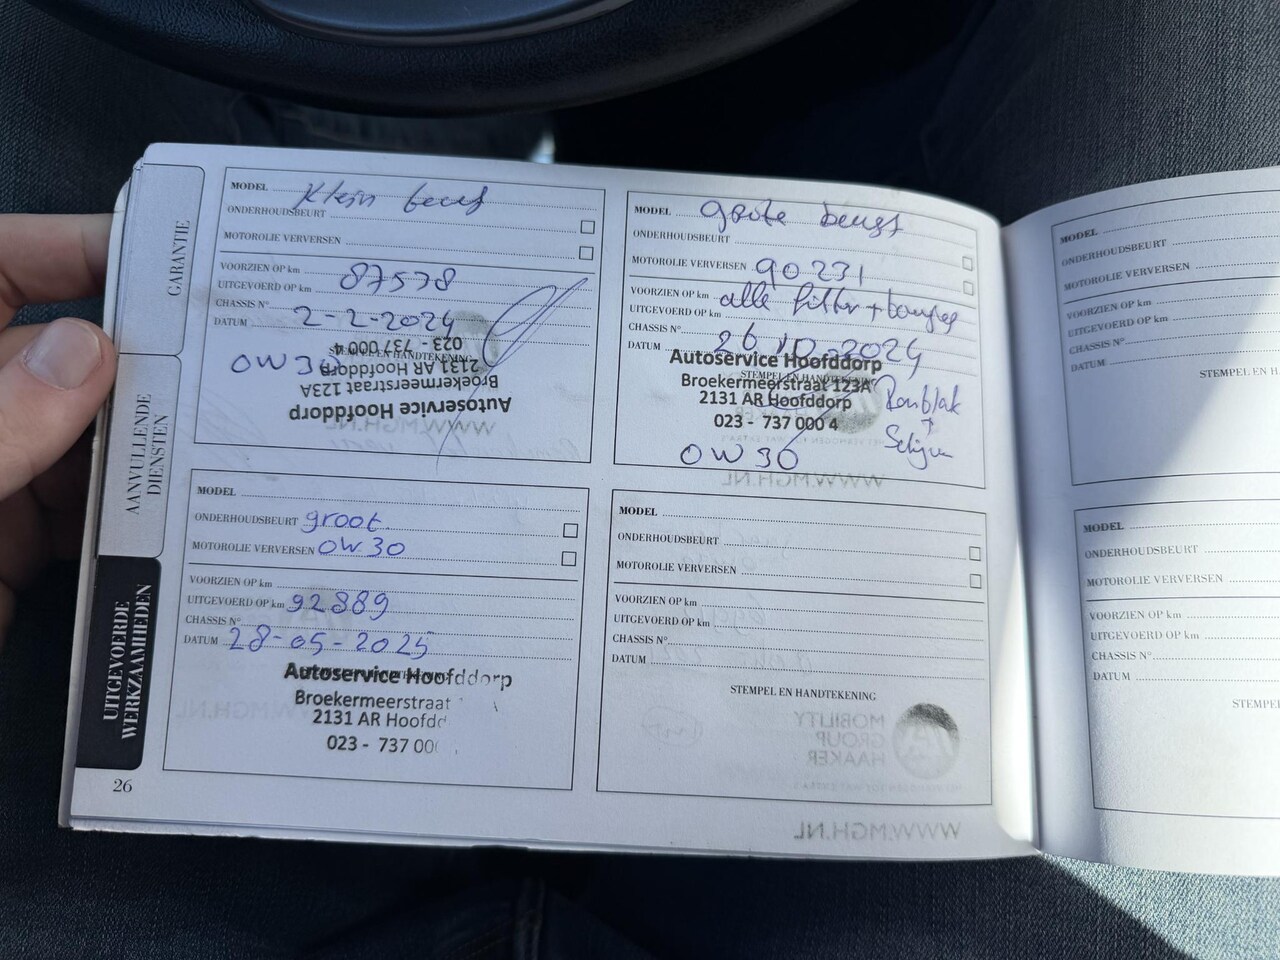 GARANTIE
AANVULLENDE
DIENSTEN
UITGEVOERDE
WERKZAAMHEDEN
MODEL Klein beurt
ONDERHOUDSBEURT
MOTOROLIE VERVERSEN
VOORZIEN OP km
UITGEVOERD OP km 87578
CHASSIS N°
DATUM 2-2-2024
STEMPEL EN HANDTEKENING
OW30
Autoservice Hoofddorp
Broekermeerstraat 123A
2131 AR Hoofddorp
023 - 737 000 4
WWW.MGH.NL
MODEL grote beurt
ONDERHOUDSBEURT
MOTOROLIE VERVERSEN 90231
VOORZIEN OP km alle filter +
UITGEVOERD OP km
CHASSIS N°
DATUM 26.10-2024
STEMPEL EN HANDTEKENING
Autoservice Hoofddorp
Broekermeerstraat 123A
2131 AR Hoofddorp
023 - 737 000 4
OW30
WWW.MGH.NL
MODEL
ONDERHOUDSBEURT groot
MOTOROLIE VERVERSEN OW30
VOORZIEN OP km
UITGEVOERD OP km 92889
CHASSIS N°
DATUM 28-05-2025
Autoservice Hoofddorp
Broekermeerstraat
2131 AR Hoofdd
023 - 737 00
MODEL
ONDERHOUDSBEURT
MOTOROLIE VERVERSEN
VOORZIEN OP km
UITGEVOERD OP km
CHASSIS N°
DATUM
STEMPEL EN HANDTEKENING
MOBILITY
GROUP
HAAKER
WWW.MGH.NL
26
MODEL
ONDERHOUDSBEURT
MOTOROLIE VERVERSEN
VOORZIEN OP km
UITGEVOERD OP km
CHASSIS N°
DATUM
STEMPEL EN H
MODEL
ONDERHOUDSBEURT
MOTOROLIE VERVERSEN
VOORZIEN OP km
UITGEVOERD OP km
CHASSIS N°
DATUM
STEMPE